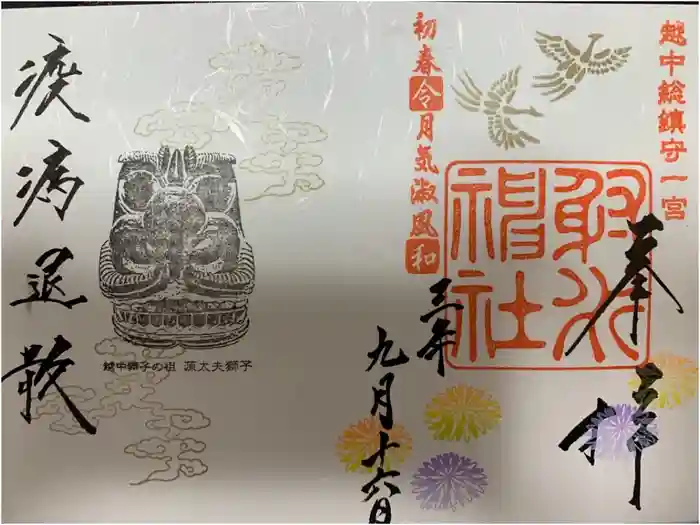 越中総鎮守一宮
奉拝
射水神社
初春令月気淑風和
三年
九月十六日
越中獅子の祖 源太夫獅子
疫病退散